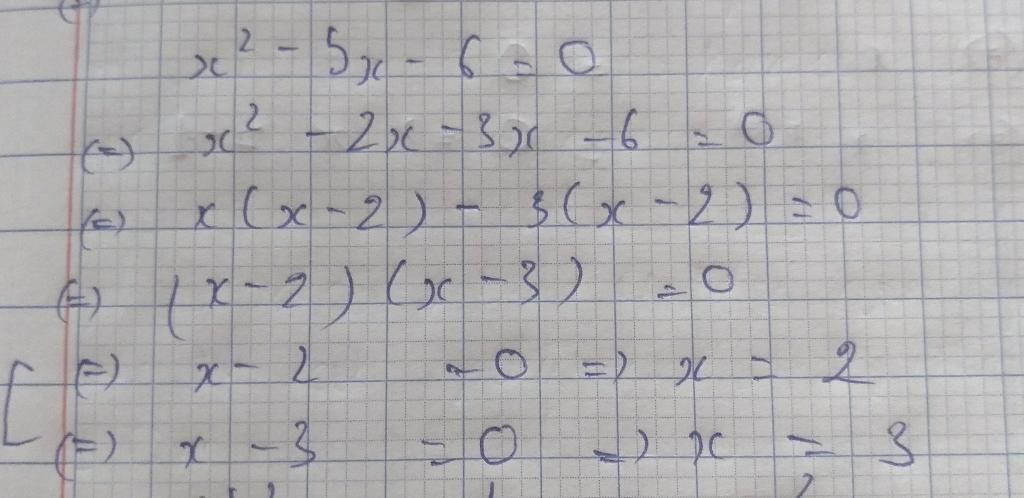 x² - 5x - 6 = 0
(=) x² - 2x - 3x - 6 = 0
(=) x(x - 2) - 3(x - 2) = 0
(=) (x - 2)(x - 3) = 0
[ (=) x - 2 = 0 => x = 2
(=) x - 3 = 0 => x = 3